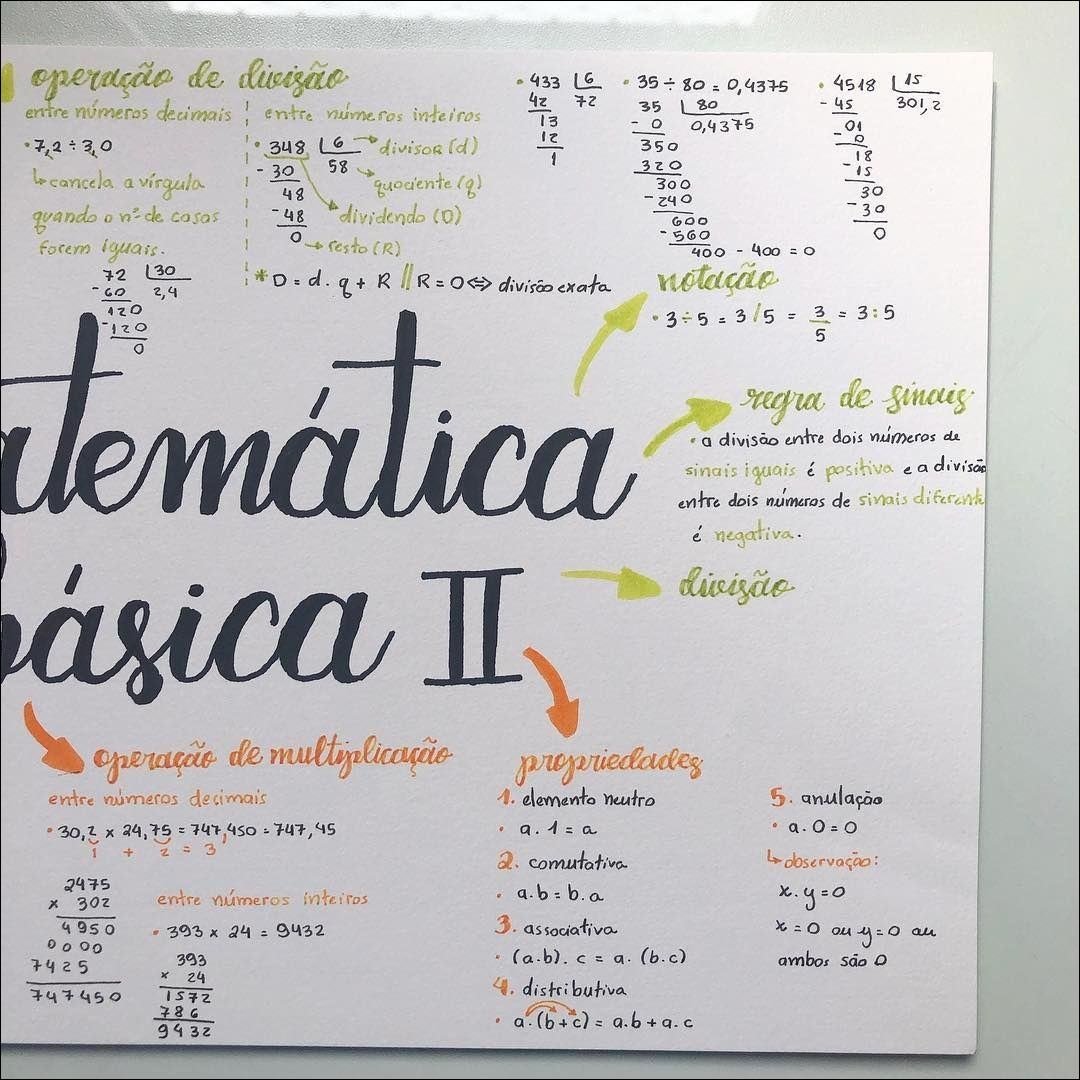 operação de divisão
entre números decimais
• 7,2 ÷ 3,0
↳ cancela a vírgula
quando o nº de casas
forem iguais.
72 | 30
- 60 2,4
120
- 120
0
entre números inteiros
• 348 | 6 → divisor (d)
- 30 58 → quociente (q)
48
- 48 dividendo (D)
0 → resto (R)
* D = d . q + R || R = 0 ⇔ divisão exata
• 433 | 6
42 72
13
12
1
• 35 ÷ 80 = 0,4375
35 | 80
- 0 0,4375
350
320
300
- 240
600
- 560
400 - 400 = 0
• 4518 | 15
- 45 301,2
01
- 0
18
- 15
30
- 30
0
notação
• 3 ÷ 5 = 3 / 5 = 3/5 = 3 : 5
regra de sinais
• a divisão entre dois números de
sinais iguais é positiva e a divisão
entre dois números de sinais diferente
é negativa.
atemática
básica II
divisão
operação de multiplicação
entre números decimais
• 30,2 x 24,75 = 747,450 = 747,45
1 + 2 = 3
2475
x 302
4950
0000
7425
747450
entre números inteiros
• 393 x 24 = 9432
393
x 24
1572
786
9432
propriedades
1. elemento neutro
• a . 1 = a
2. comutativa
• a.b = b.a
3. associativa
• (a.b) . c = a. (b.c)
4. distributiva
• a.(b+c) = a.b + a.c
5. anulação
• a.0 = 0
↳ observação:
x.y=0
x = 0 ou y = 0 ou
ambos são 0